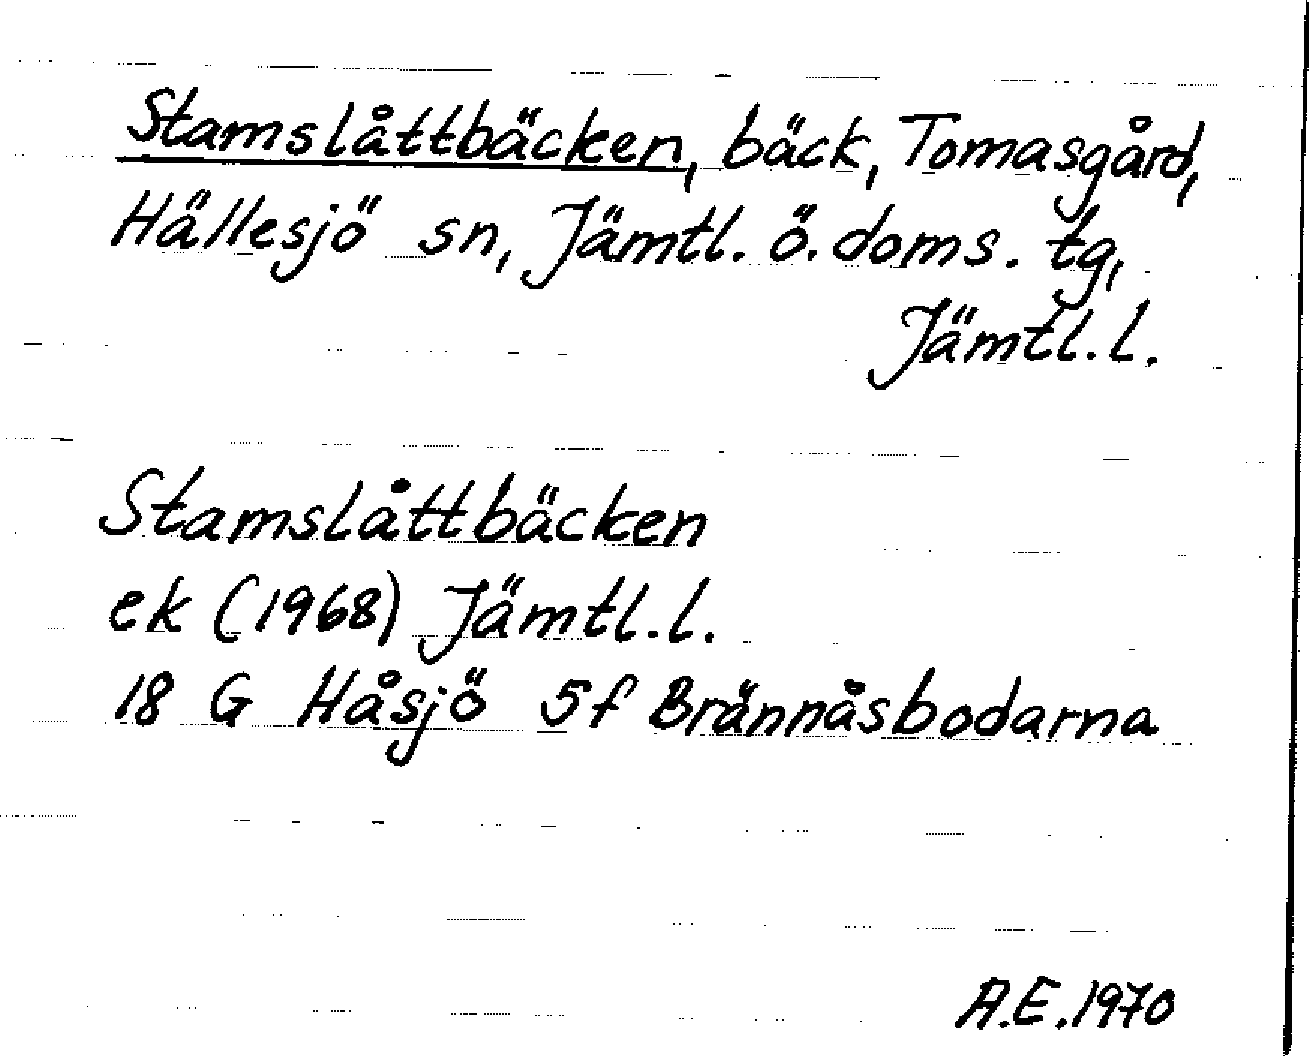 Stamslåttbäcken, bäck, Tomasgård,
Hällesjö sn, Jämtl. ö. doms. tg,
Jämtl. l.
Stamslåttbäcken
ek (1968) Jämtl. l.
18 G Håsjö 5f Brännåsbodarna
A.E. 1970